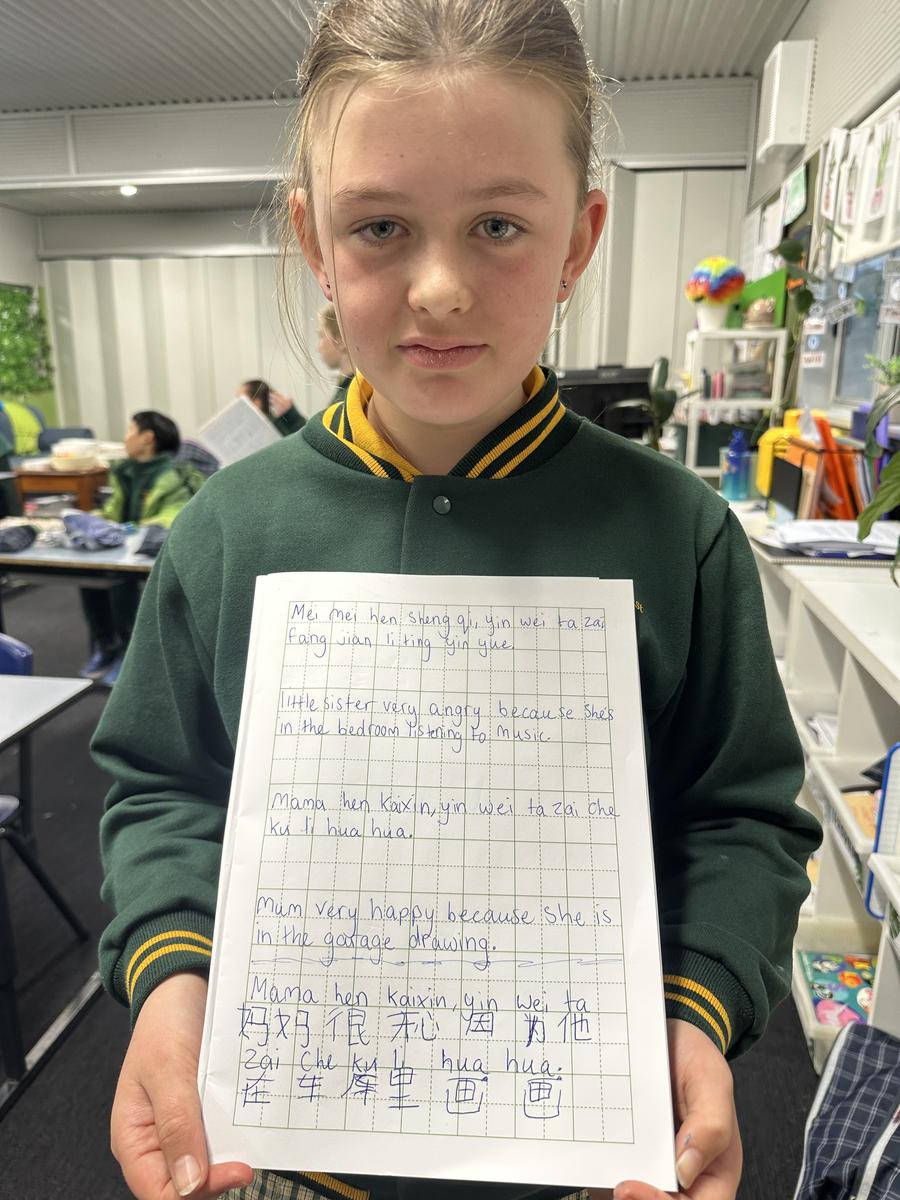 Mei mei hen sheng qi, yin wei ta zai
fang jian li ting yin yue.
little sister very angry because she's
in the bedroom listening to music.
Mama hen kaixin, yin wei ta zai che
ku li hua hua.
Mum very happy because she is
in the garage drawing.
Mama hen kaixin, yin wei ta
妈妈很 心 因为他
zai che ku li hua hua.
在车库里画画